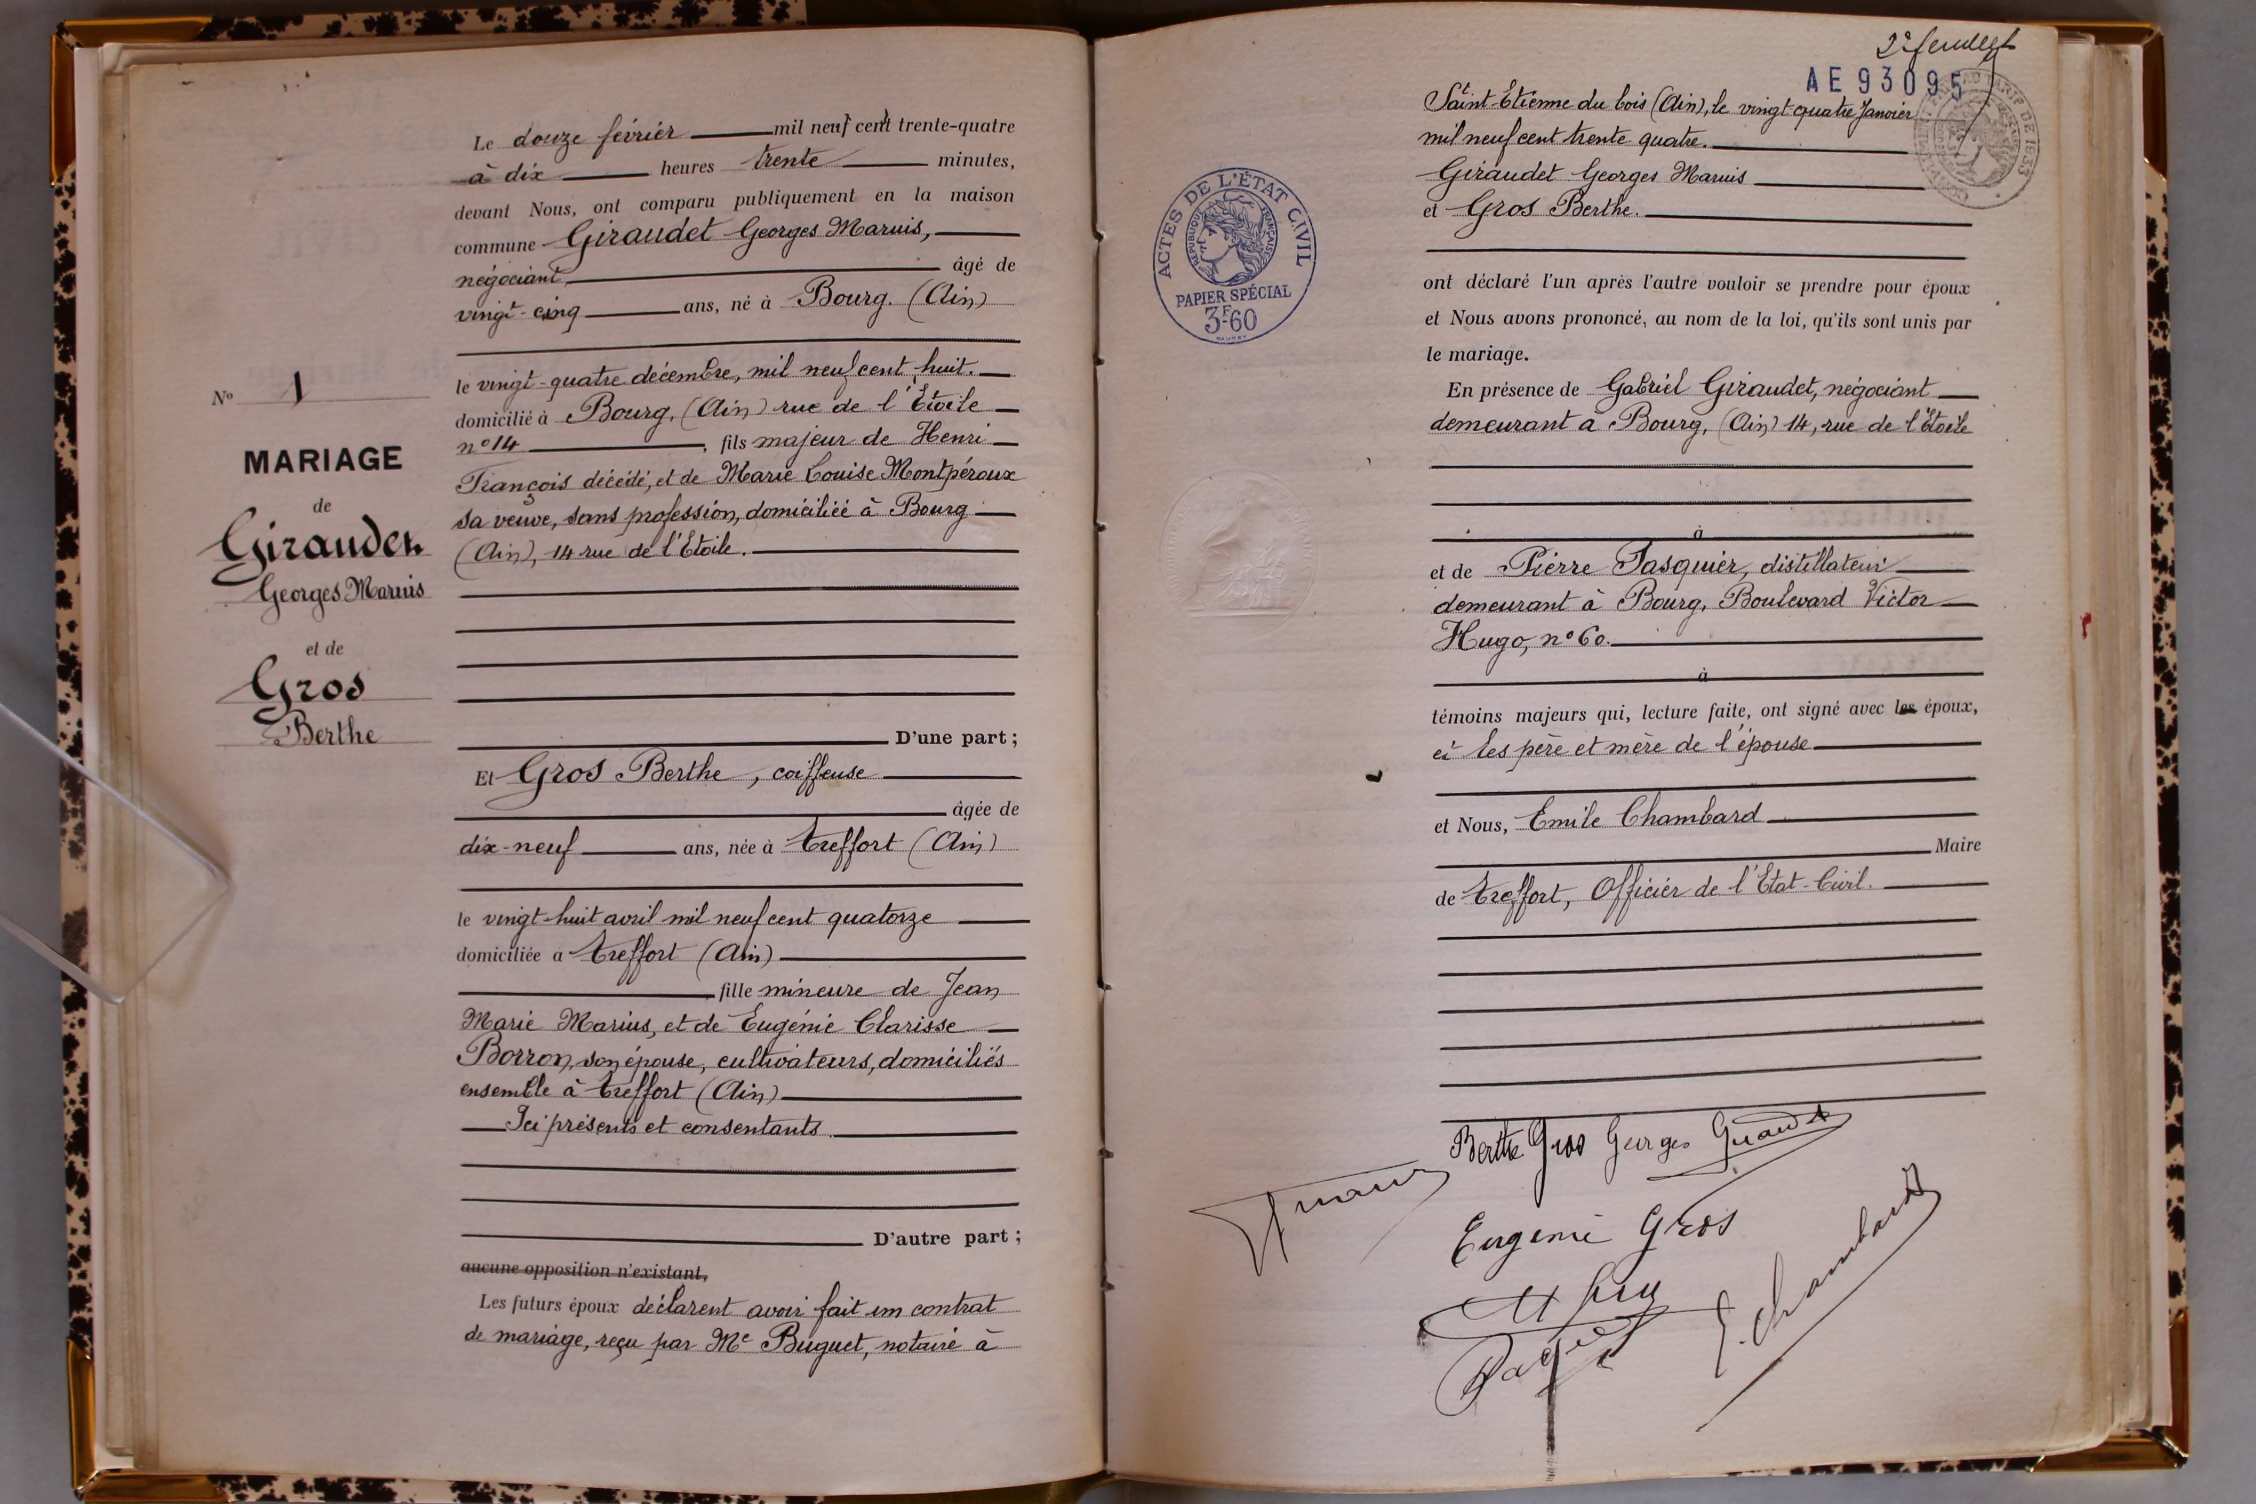 Nº 1
MARIAGE
de
Giraudet
Georges Marius
et de
Gros
Berthe
Le douze février mil neuf cent trente-quatre
à dix heures trente minutes,
devant Nous, ont comparu publiquement en la maison
commune Giraudet Georges Marius,
négociant âgé de
vingt-cinq ans, né à Bourg. (Ain)
le vingt-quatre décembre, mil neuf cent huit.
domicilié à Bourg, (Ain) rue de l'Etoile
nº 14, fils majeur de Henri
François décédé, et de Marie Louise Montpéroux
sa veuve, sans profession, domiciliée à Bourg
(Ain), 14 rue de l'Etoile.
D'une part ;
Et Gros Berthe, coiffeuse
âgée de
dix-neuf ans, née à Treffort (Ain)
le vingt-huit avril mil neuf cent quatorze
domiciliée à Treffort (Ain)
fille mineure de Jean
Marie Marius, et de Eugénie Clarisse
Borron, son épouse, cultivateurs, domiciliés
ensemble à Treffort (Ain)
Ici présents et consentants.
D'autre part ;
aucune opposition n'existant,
Les futurs époux déclarent avoir fait un contrat
de mariage, reçu par Me Buguet, notaire à
2e feuillet
AE 93095
St Etienne du bois (Ain), le vingt-quatre Janvier
mil neuf cent trente quatre.
Giraudet Georges Marius
et Gros Berthe.
ACTES DE L'ÉTAT CIVIL
RÉPUBLIQUE FRANÇAISE
PAPIER SPÉCIAL
3F60
ont déclaré l'un après l'autre vouloir se prendre pour époux
et Nous avons prononcé, au nom de la loi, qu'ils sont unis par
le mariage.
En présence de Gabriel Giraudet, négociant
demeurant à Bourg, (Ain) 14, rue de l'Etoile
à
et de Pierre Pasquier, distillateur
demeurant à Bourg, Boulevard Victor
Hugo, nº 60.
à
témoins majeurs qui, lecture faite, ont signé avec les époux,
et les père et mère de l'épouse
et Nous, Emile Chambard
Maire
de Treffort, Officier de l'Etat-Civil.
Berthe Gros Georges Giraudet
Eugenie Gros
E. Chambard